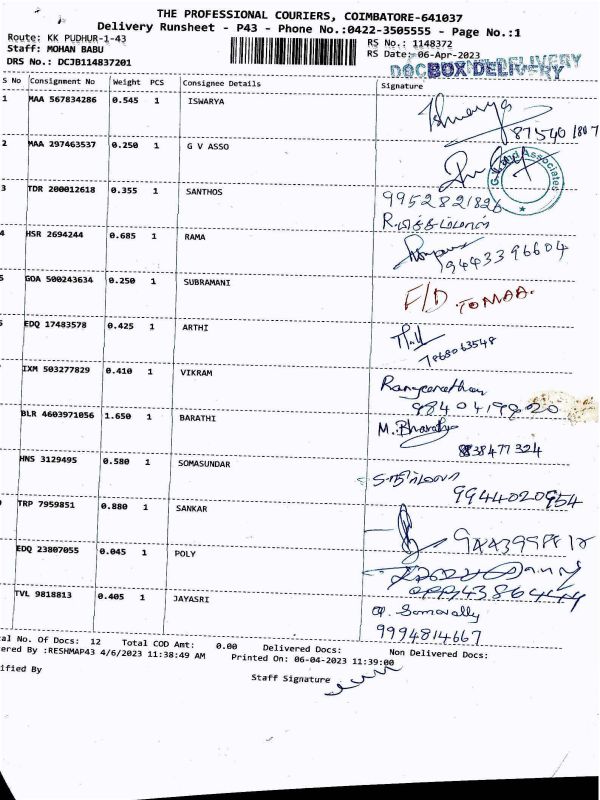 THE PROFESSIONAL COURIERS, COIMBATORE-641037
Delivery Runsheet - P43 - Phone No.:0422-3505555 - Page No.:1
Route: KK PUDHUR-1-43
RS No.: 1148372
Staff: MOHAN BABU
RS Date: 06-Apr-2023
DRS No.: DCJB114837201
DOCBOX DELIVERY
S No Consignment No Weight PCS Consignee Details Signature
1 MAA 567834286 0.545 1 ISWARYA Ishwarya
2 MAA 297463537 0.250 1 G V ASSO
3 TDR 200012618 0.355 1 SANTHOS 9952821826
4 HSR 2694244 0.685 1 RAMA 9443396604
5 GOA 500243634 0.250 1 SUBRAMANI F/D TO MAA.
6 EDQ 17483578 0.425 1 ARTHI 7868063548
7 IXM 503277829 0.410 1 VIKRAM
BLR 4603971056 1.650 1 BARATHI M. Bharathi
8838477324
HNS 3129495 0.580 1 SOMASUNDAR
9944020954
TRP 7959851 0.880 1 SANKAR
EDQ 23807055 0.045 1 POLY
TVL 9818813 0.405 1 JAYASRI
9994814667
al No. Of Docs: 12 Total COD Amt: 0.00 Delivered Docs: Non Delivered Docs:
ered By :RESHMAP43 4/6/2023 11:38:49 AM Printed On: 06-04-2023 11:39:00
ified By
Staff Signature